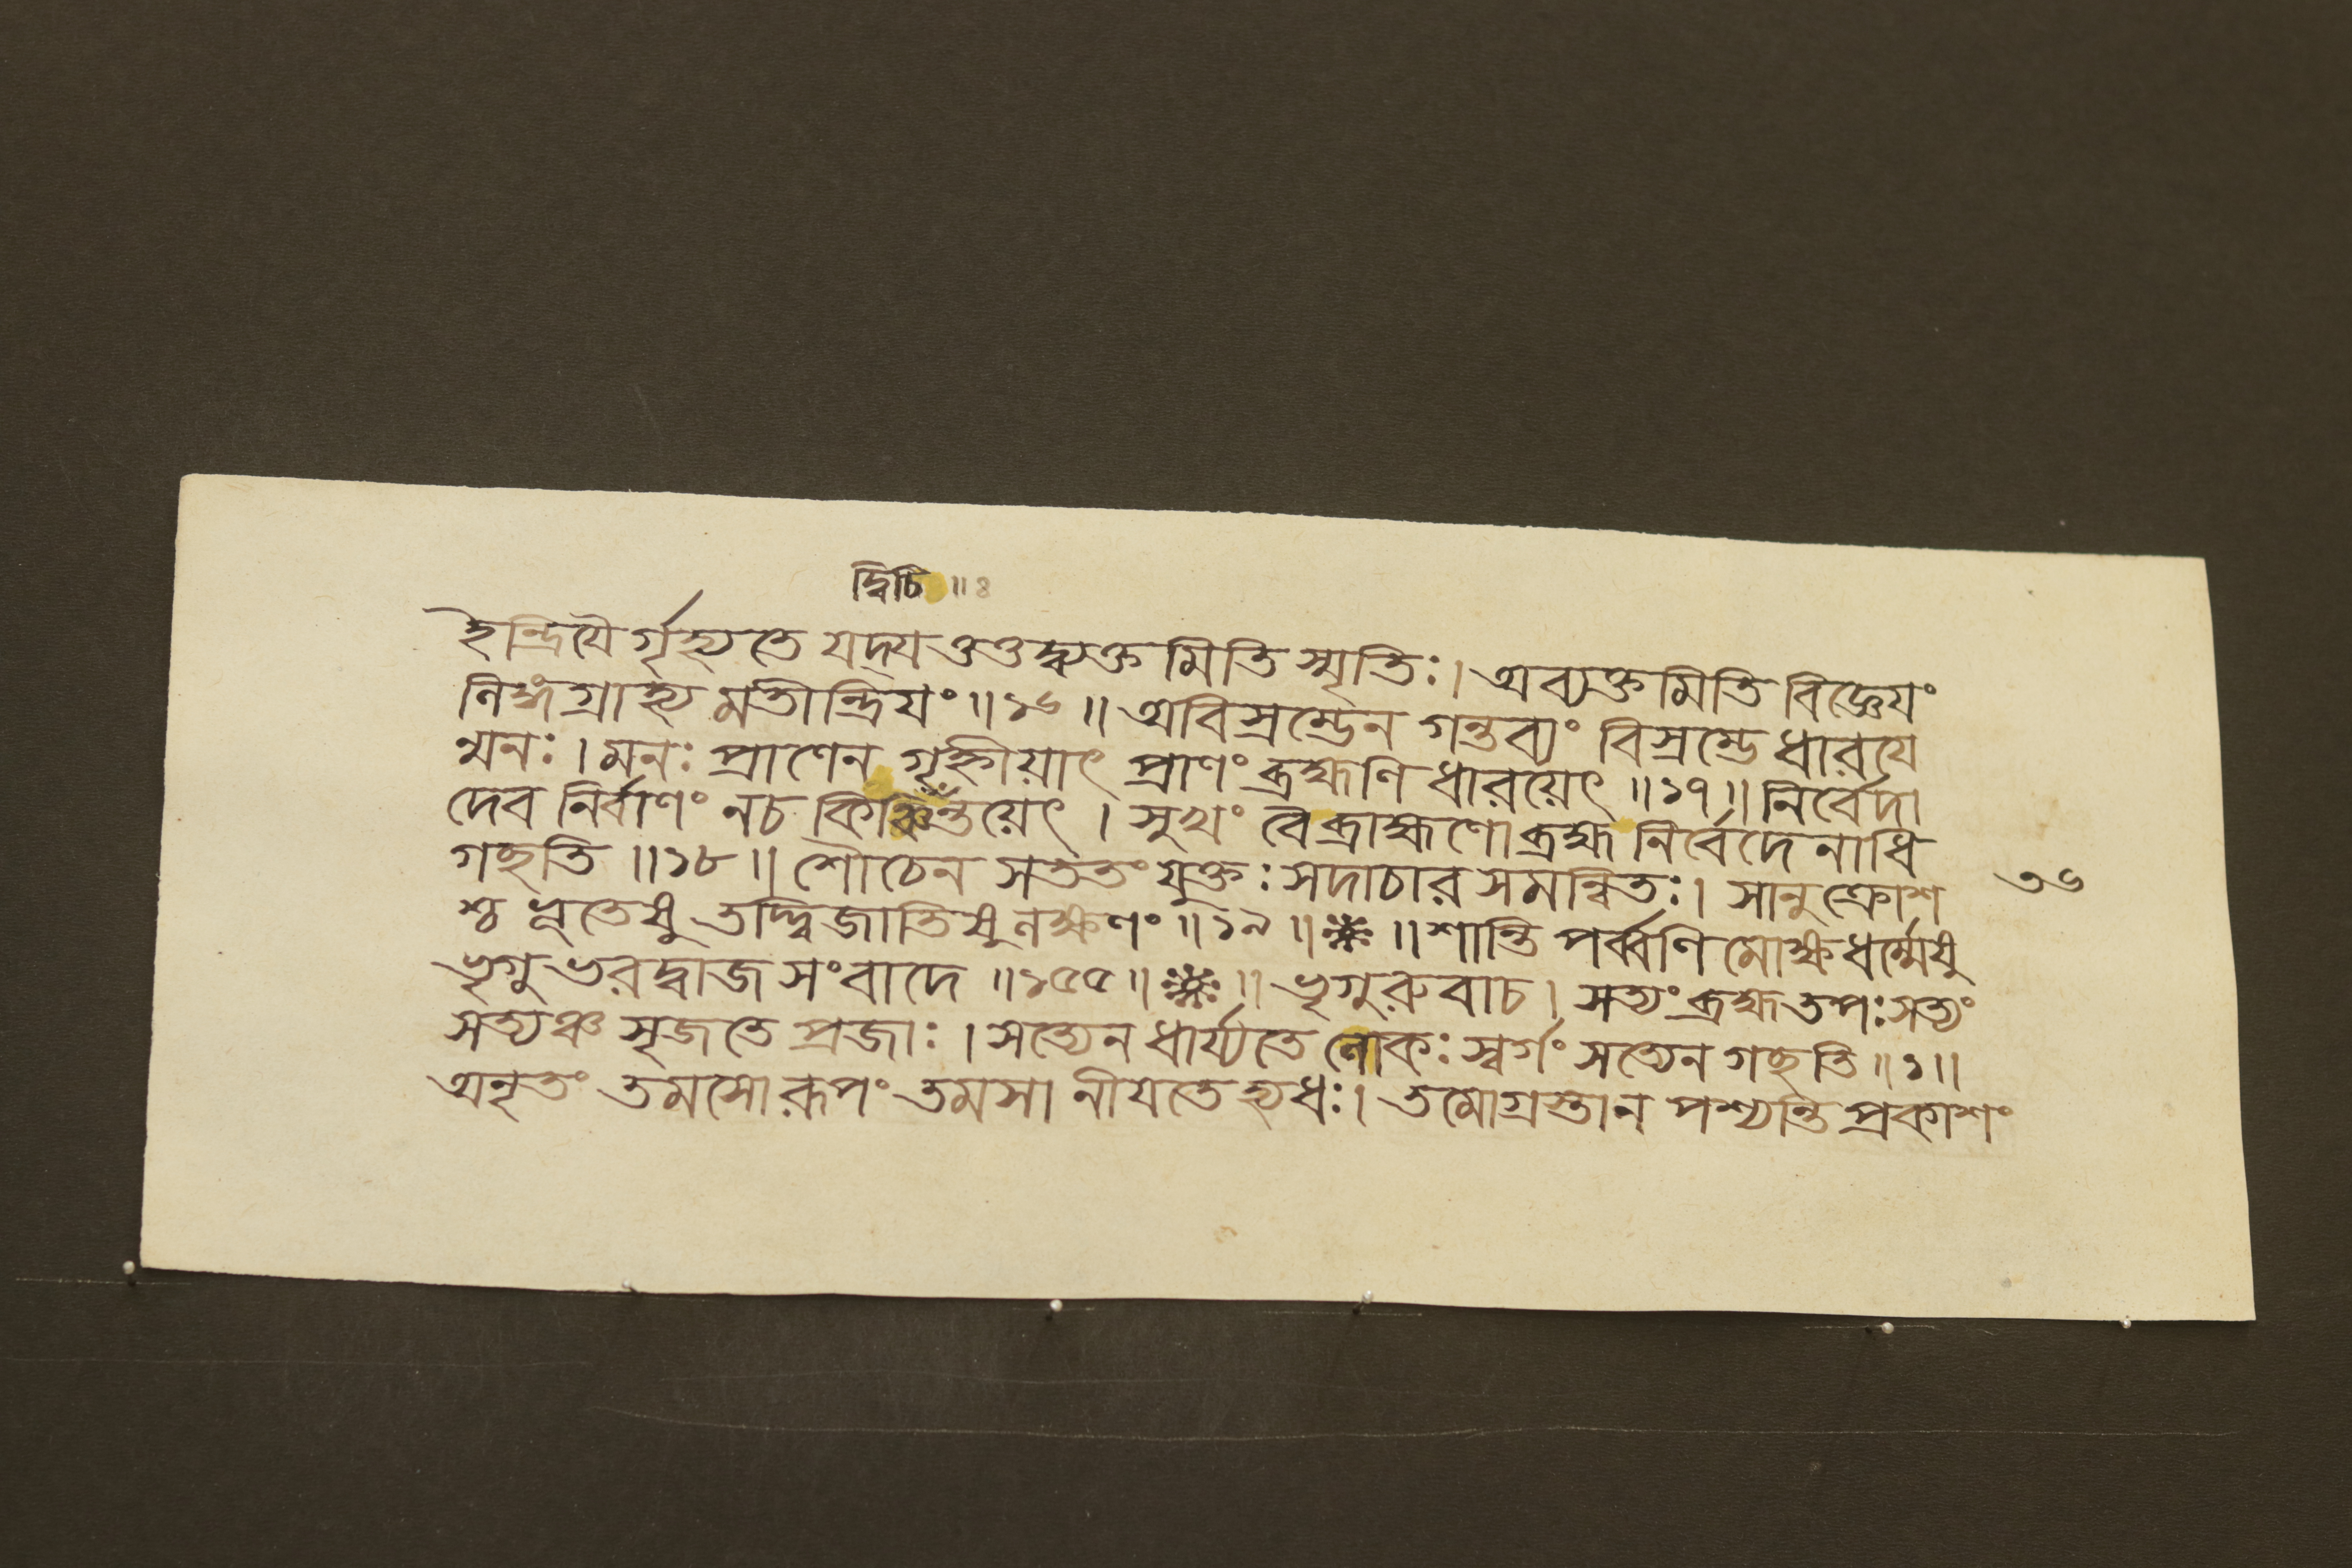 দ্বিচি ॥ ৪
ইন্দ্রিযৈর্গৃহ্যতে যদ্যত্তত্তদ্ব্যক্তমিতি স্মৃতিঃ । অব্যক্তমিতি বিজ্ঞেযং
লিঙ্গগ্রাহ্যমতীন্দ্রিযং ॥ ১৬ ॥ অবিস্রম্ভেন গন্তব্যং বিস্রম্ভে ধারযে
ন্মনঃ । মনঃ প্রাণেন গৃহ্নীয়াৎ প্রাণং ব্রহ্মণি ধারয়েৎ ॥ ১৭ ॥ নির্বেদা
দেব নির্বাণং নচ কিঞ্চিদ্বিচিন্তয়েৎ । সুখং বৈ ব্রাহ্মণো ব্রহ্ম নির্বেদেনাধি
গছতি ॥ ১৮ ॥ শৌচেন সততং যুক্তঃ সদাচারসমন্বিতঃ । সানুক্রোশ
শ্চ ভূতেষু তদ্দ্বিজাতিষু লক্ষণং ॥ ১৯ ॥ ※ ॥ শান্তিপর্ব্বণি মোক্ষধর্ম্মেষু
ভৃগুভরদ্বাজসংবাদে ॥ ১৫৫ ॥ ※ ॥ ভৃগুরুবাচ । সত্যং ব্রহ্ম তপঃ সত্যং
সত্যঞ্চ সৃজতে প্রজাঃ । সত্যেন ধার্য্যতে লোকঃ স্বর্গং সত্যেন গছতি ॥ ১ ॥
অনৃতং তমসো রূপং তমসা নীযতে হ্যধঃ । তমোগ্রস্তা ন পশ্যন্তি প্রকাশং
৩৬